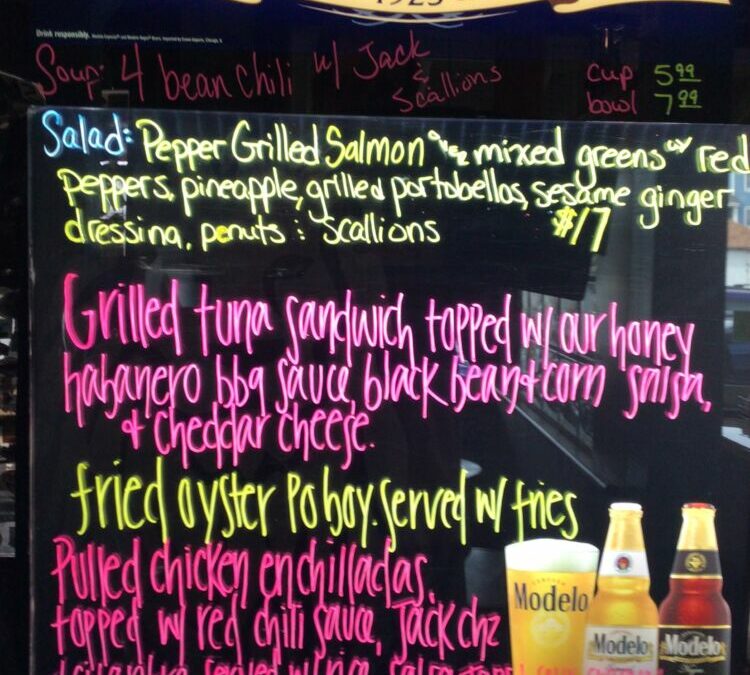 1925
Drink responsibly.
Soup: 4 bean chili w/ Jack
& Scallions
cup 5.99
bowl 7.99
Salad: Pepper Grilled Salmon over mixed greens w/ red
peppers, pineapple, grilled portobellos, sesame ginger
dressing, penuts & scallions $17
Grilled tuna sandwich topped w/ our honey
habanero bbq sauce, black bean + corn salsa,
+ cheddar cheese.
fried oyster Poboy. Served w/ fries
Pulled chicken enchilladas.
topped w/ red chili sauce, Jack chz
+ cilantro served w/ rice, salsa
Modelo
Modelo
Modelo